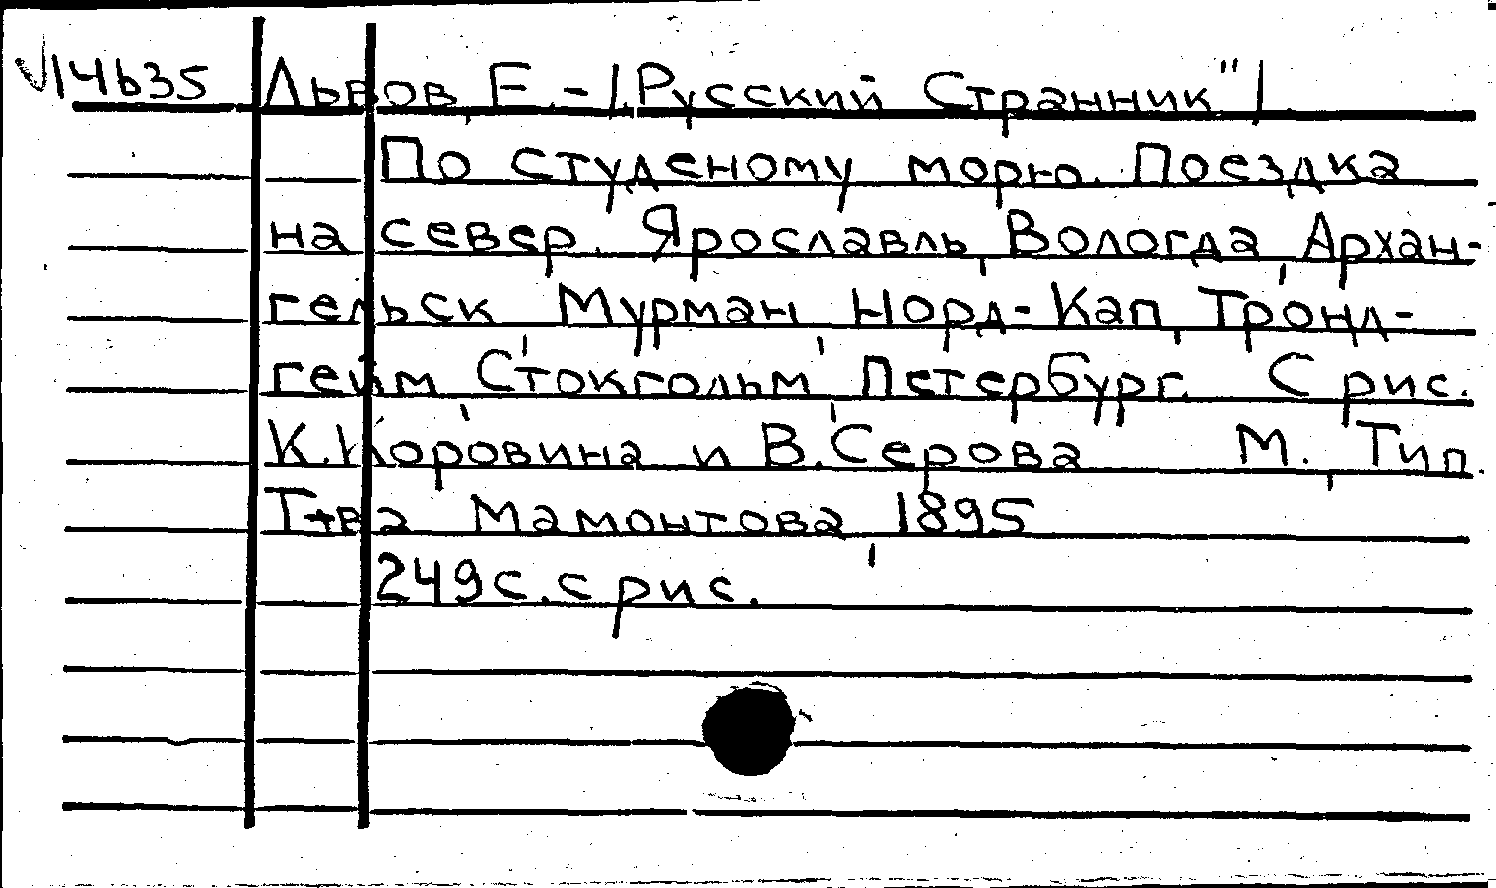 √14b35 Львов, Е. - /„Русский Странник"/.
По студеному морю. Поездка
на север. Ярославль, Вологда, Архан-
гельск, Мурман, Норд-Кап, Тронд-
гейм, Стокгольм, Петербург. С рис.
К. Коровина и В. Серова. М., Тип.
Т-ва Мамонтова, 1895
249 с. с рис.